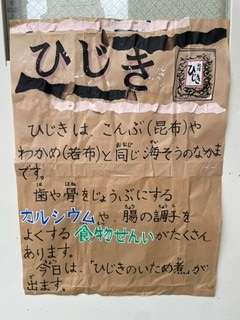 ひじき
ひじき
ひじきは、こんぶ(昆布)や
わかめ(若布)と同じ海そうのなかま
です。
歯や骨をじょうぶにする
カルシウムや、腸の調子を
よくする食物せんいがたくさん
あります。
今日は、「ひじきのいため煮」が
出ます。